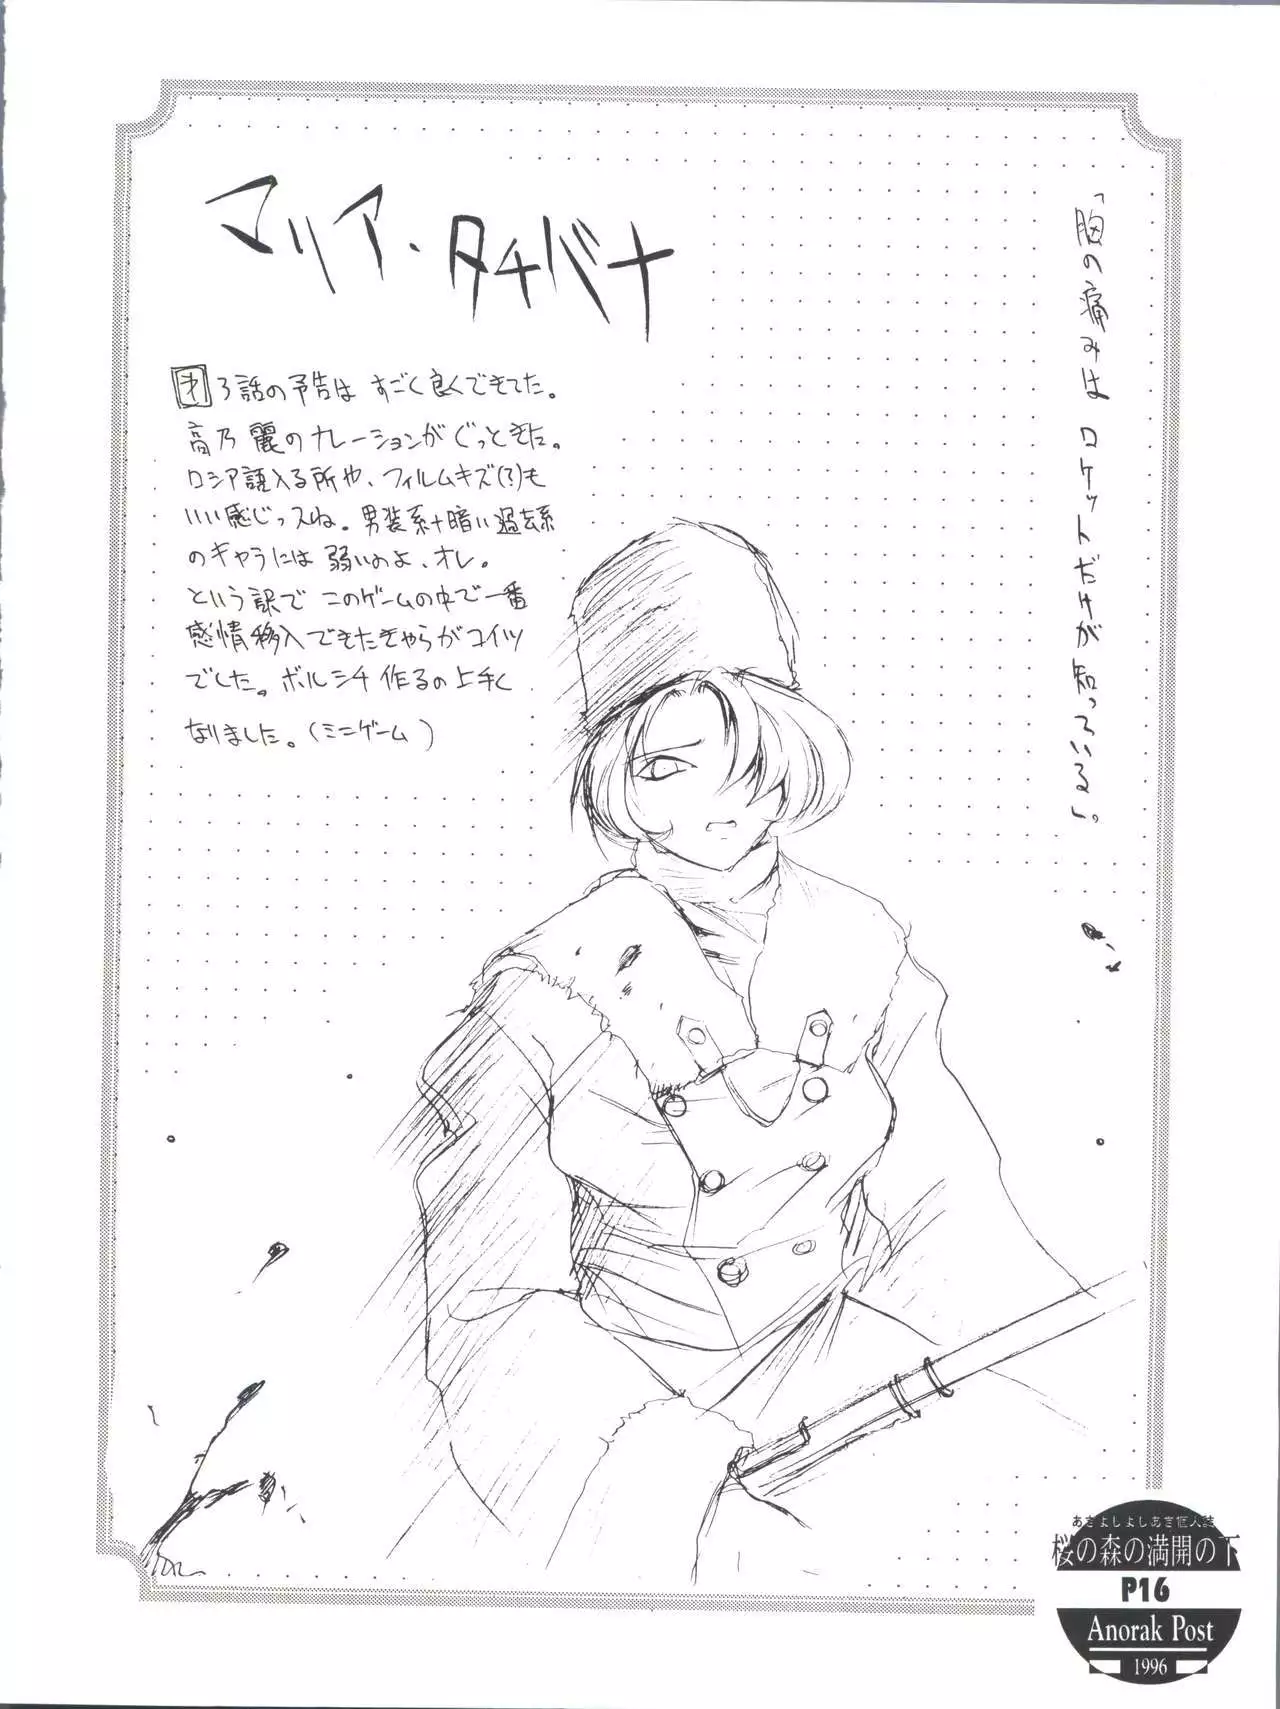 マリア・タチバナ
「胸の痛みは ロケットだけが知っている」。
才3話の予告は すごく良くできてた。
高乃 麗のナレーションがぐっときた。
ロシア語入る所や、フィルムキズ(?)も
いい感じっスね。男装系+暗い過去系
のキャラには 弱いのよ、オレ。
という訳で このゲームの中で一番
感情移入できたきゃらがコイツ
でした。ボルシチ作るの上手く
なりました。(ミニゲーム)
あさよしよしあき個人誌
桜の森の満開の下
P16
Anorak Post
1996